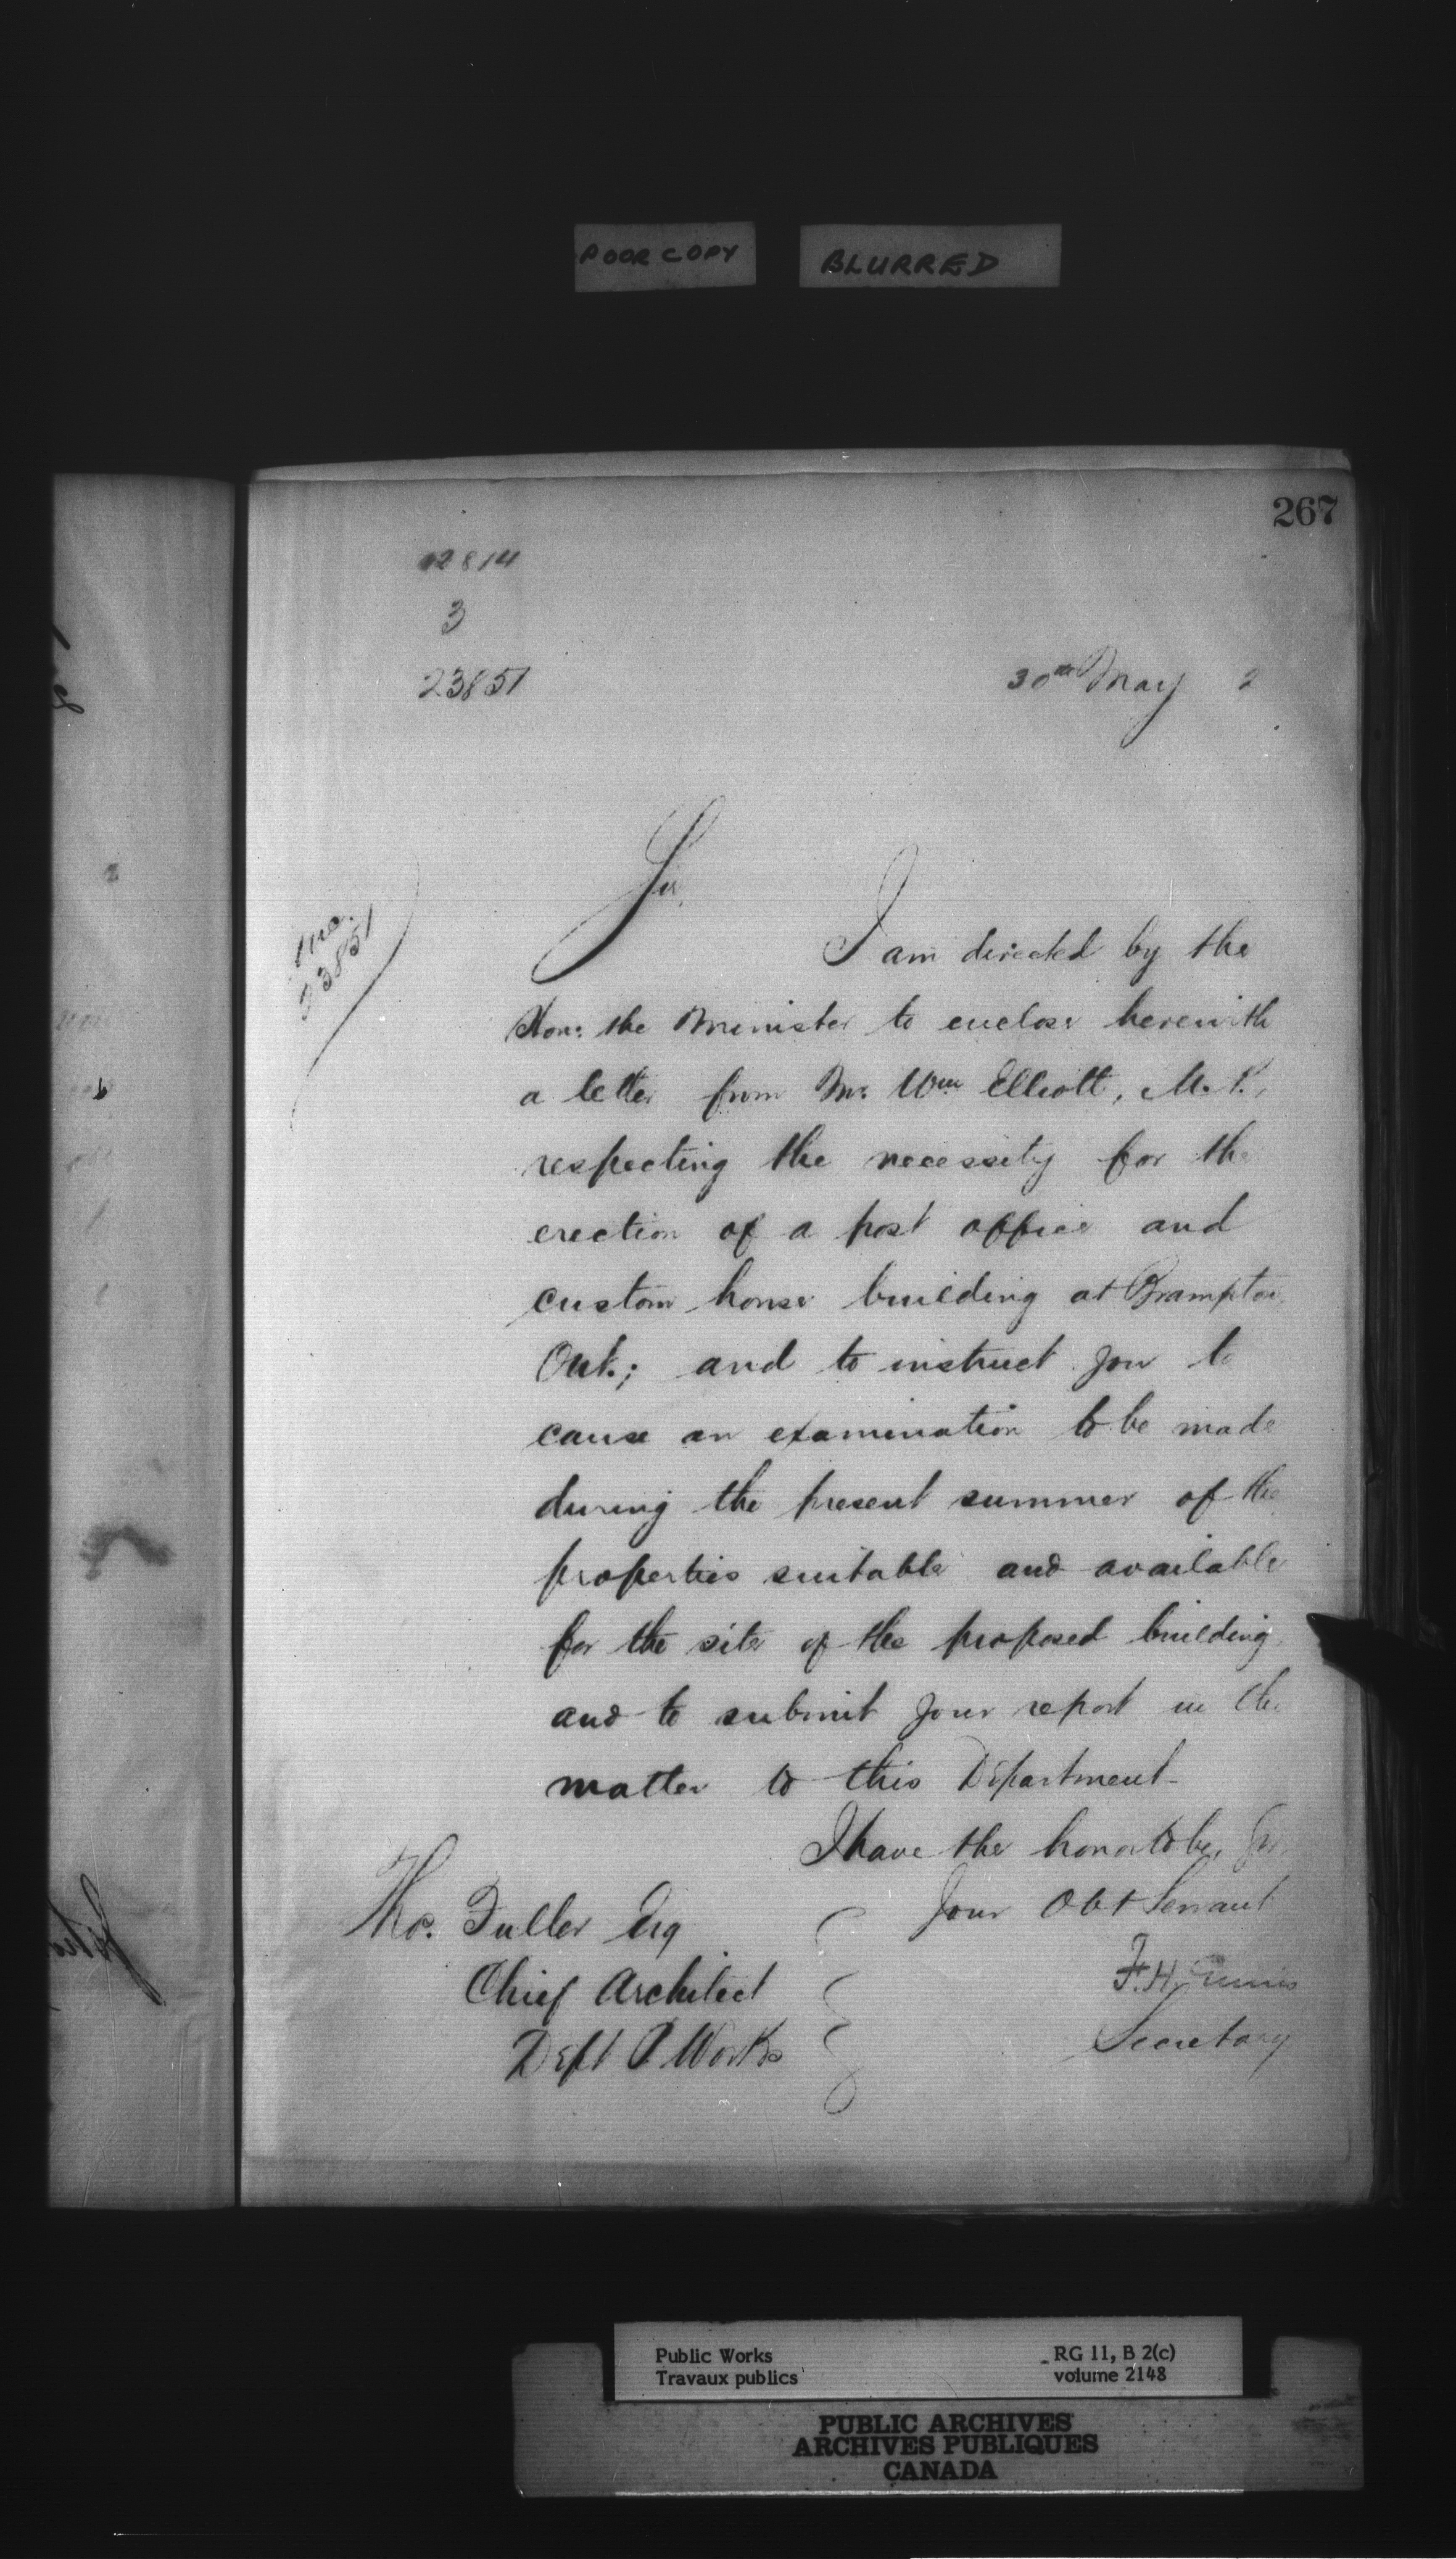 POOR COPY
BLURRED
267
12814
3
23851
30th May 2
Sir,
Inc.
23851
I am directed by the
Hon: the Minister to enclose herewith
a letter from Mr. Wm Elliott, M.P.,
respecting the necessity for the
erection of a post office and
custom house building at Brampton,
Ont.; and to instruct you to
cause an examination to be made
during the present summer of the
properties suitable and available
for the site of the proposed building,
and to submit your report in the
matter to this Department.
I have the honor to be, Sir,
Your Obt Servant
F. H. Ennis
Secretary
Tho. Fuller Esq
Chief Architect
Dept P Works
Public Works
Travaux publics
RG 11, B 2(c)
volume 2148
PUBLIC ARCHIVES
ARCHIVES PUBLIQUES
CANADA